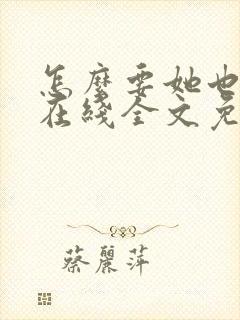 怎麽要她也
在綫全文免
蔡麗萍